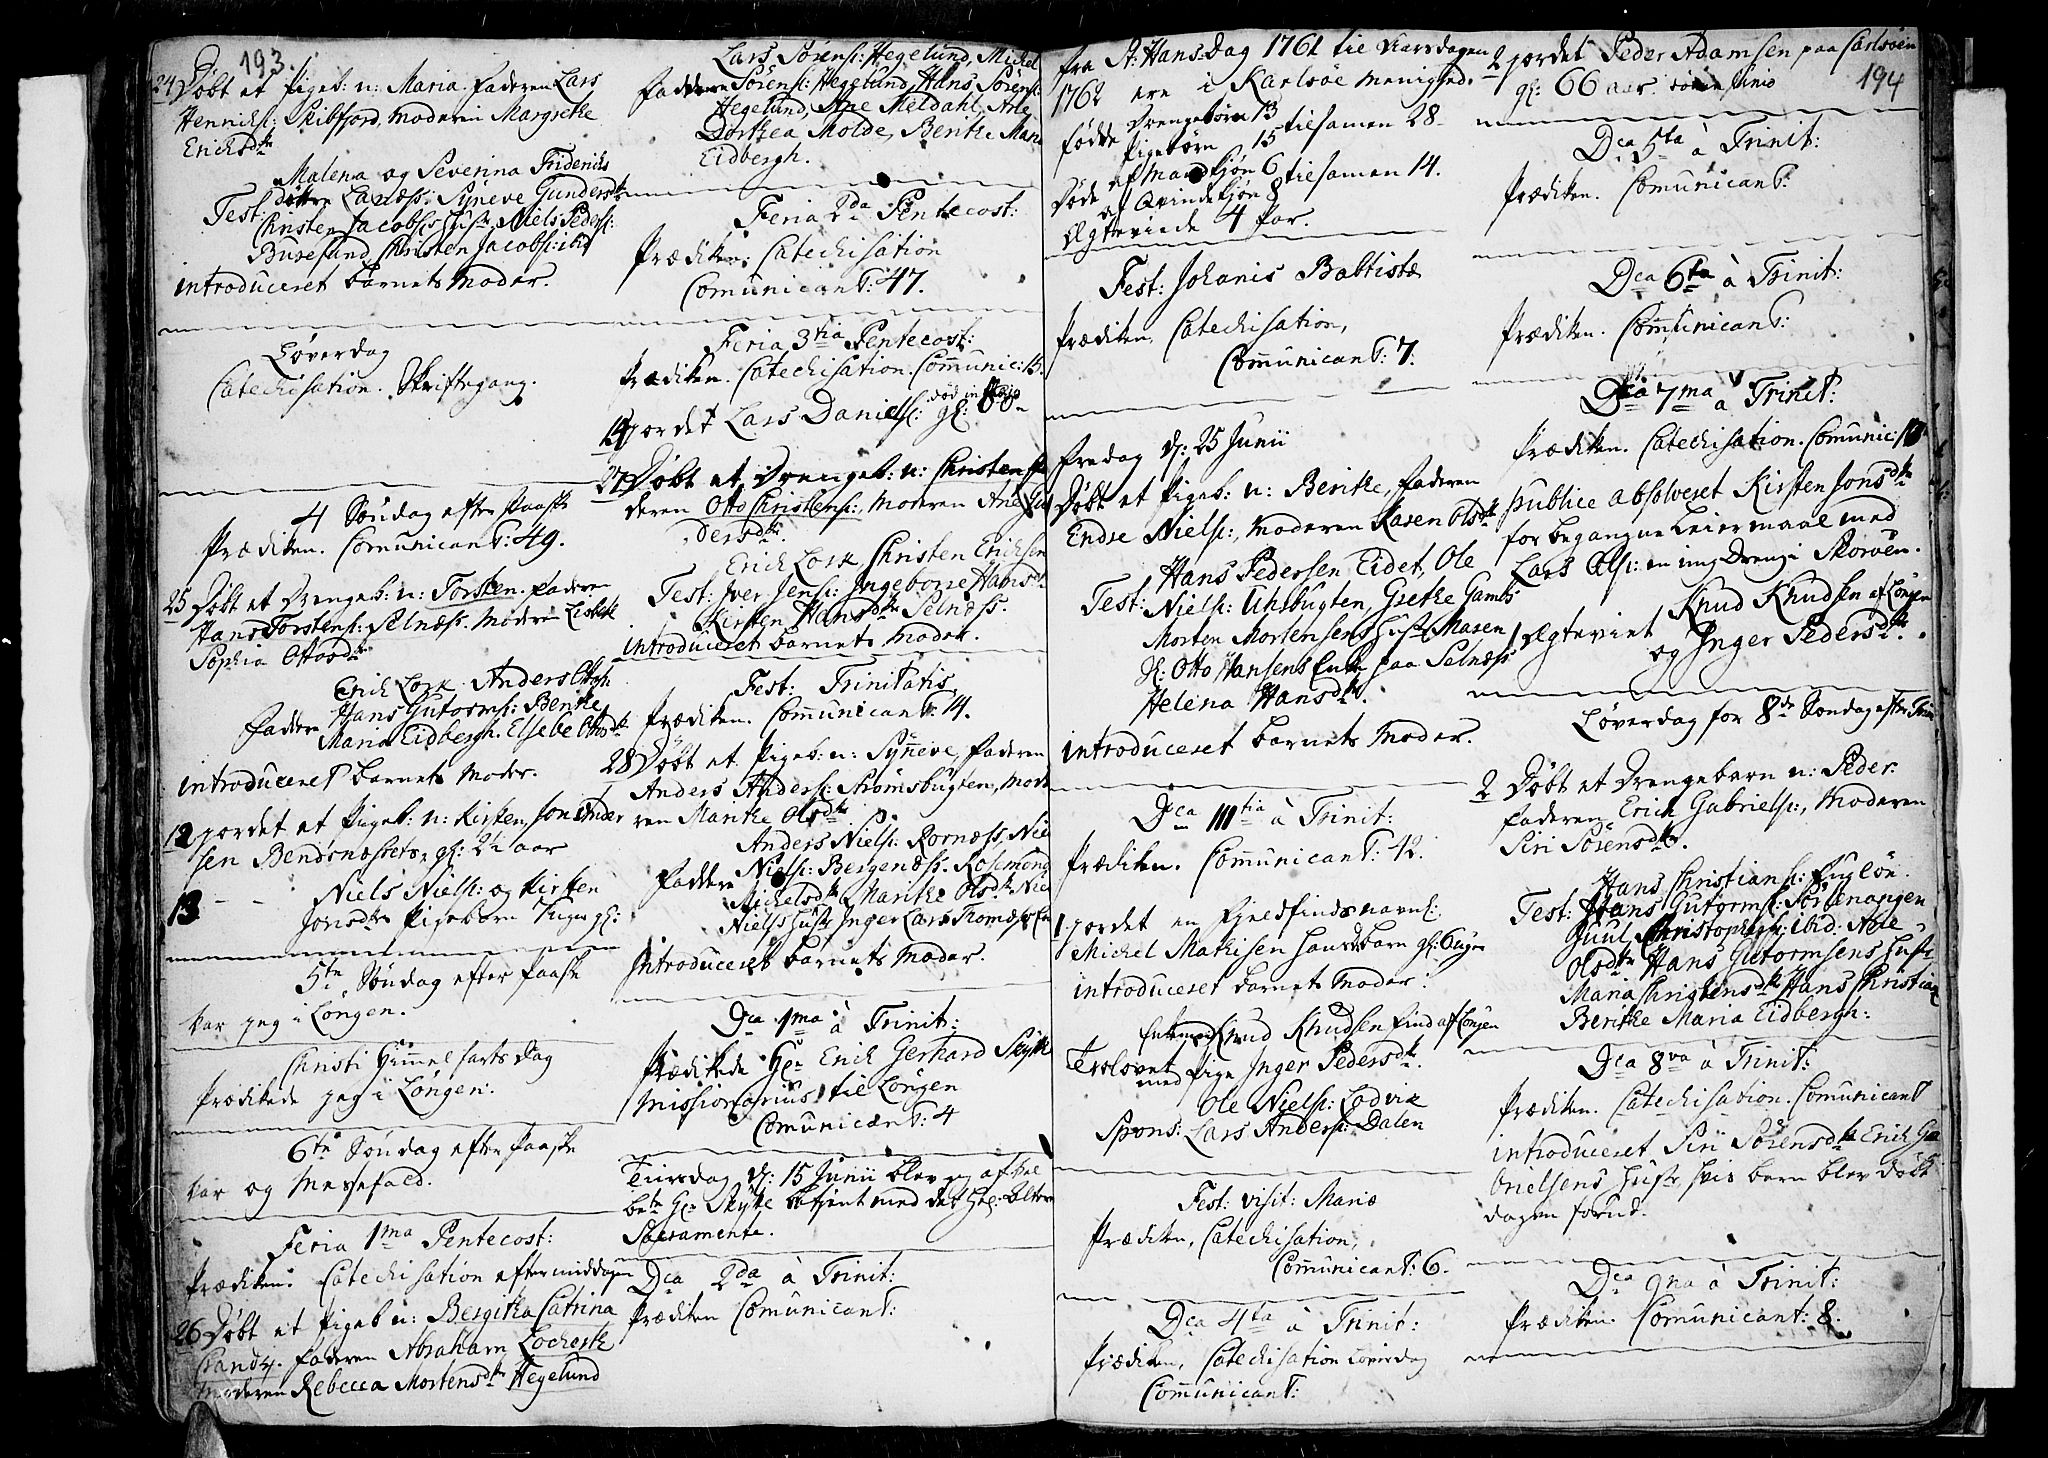 193.
24 Døbt et Pigeb: n: Maria. Faderen Lars
Henrichs: Skibfiord, Moderen Margrethe
Erichsdtr
Malena og Severina Friderichs
døttre Karlsøe: Synneve Gundersdtr
Test: Christen Jacobss Hustr Niels Peders:
Burøsund, Christen Jacobs: ibid
introduceret barnets Moder.
Løverdag
Catechisation. Skriftegang.
4 Søndag efter Paaske
Prædiken. Comunicant: 49.
25 Døbt et Drengeb: n: Torsten. Faderen
Hans Torstens: Selnæss. Moderen Lisbeth
Sophia Ottosdtr
Erich Lorx. Anders
Faddere Hans Guttorms: Benthe
Maria Eidbergh. Elsebe Ottosdtr
introduceret barnets Moder.
12 jordet et Pigeb: n: Kirsten, Jon Ander
sen Bendsnæssets, gl: 2½ aar
13 - - Niels Niels: og Kirsten
Jonsdtrs Pigebarn Uger gl:
5te Søndag efter Paaske
var jeg i Løngen.
Christi Himmelfarts Dag
Prædikede jeg i Løngen.
6te Søndag efter Paaske
var og Messefald.
Feria 1ma Pentecost:
Prædiken. Catechisation eftermiddagen
26 Døbt et Pigeb n: Bergitha Catrina
Brandy. Faderen Abraham Lochert
Moderen Rebecca Mortensdtr Hegelund
Lars Sørens: Hegelund, Michel
Faddere Sørens: Hegelund, Hans Sørens:
Hegelund, Ane Meldahl, Ane
Dorthea Molde, Benthe Maria
Eidbergh.
Feria 2da Pentecost:
Prædiken. Catechisation
Comunicant: 47.
Feria 3tia Pentecost:
Prædiken. Catechisation. Comunic: 15.
14 jordet Lars Daniels: gl: 80
27 Døbt et Drengeb: n: Christen Fa
deren Otto Christens:, Moderen Ane
dersdtr.
Erich Lorx, Christen Erichsen
Test: Iver Jens: Ingeborre Hansdtr
Kirsten Hansdtr Selnæss.
introduceret barnets Moder.
Fest: Trinitatis
Prædiken. Comunicant: 14.
28 Døbt et Pigeb: n: Synneve, Faderen
Anders Anders: Strømsbugten, Mode
ren Marithe Olsdtr
Anders Niels: Kornæss, Niels
Faddere Niels: Bergenæss. Rosemond
Michelsdtr Marithe Olsdtr Niels
Nielss Hustr Inger Lars Thomess
Introduceret barnets Moder.
Dca 1ma à Trinit:
Prædikede Hr Erich Gerhard Skytte
Missionarius til Løngen
Comunicant: 4
Tiirsdag d: 15 Junii blev jeg af be
bete Hr Skytte betient med det Høy: Alterens
Sacramente.
Dca 2da à Trinit:
Prædiken Comunicant:
fra St: Hans Dag 1761 til Aarsdagen
1762 ere i Karlsøe Menighed
fødde Drengebørn 13
Pigebørn 15 tilsamen 28
Døde af Mandkiøn 6 tilsamen 14.
af Qvindekiøn 8
Ægteviede 4 Par.
Fest: Johanis Babtistæ
Prædiken, Catechisation,
Comunicant: 7.
Fredag d: 25 Junii
Døbt et Pigeb: n: Berithe, Faderen
Endre Niels:, Moderen Karen Olsdtr
Hans Pedersen Eidet, Ole
Test: Niels: Uhsbugten, Grethe Gambs
Morten Mortensens Hustr Maren
Sl: Otto Hansens Enke paa Selnæss
Helena Hansdtr.
introduceret barnets Moder.
Dca IIItia à Trinit:
Prædiken. Comunicant: 42.
1 jordet en Fjeldfinds navnl:
Michel Mathisen barn gl: 6 uger
introduceret barnets Moder.
Enkemand Knud Khudsen find af Løngen
Trolovet med Pige Inger Pedersdtr.
Ole Niels: Lodvik
Spons: Lars Anders: Dalen
Fest: Visit: Mariæ
Prædiken, Catechisation,
Comunicant: 6.
Dca 4ta à Trinit:
Prædiken, Catechisation Løverdag
Comunicant:
2 jordet Peder Adamsen paa Carlsøen
gl: 66 aar.
194
Dca 5ta à Trinit:
Prædiken. Comunicant:
Dca 6ta à Trinit:
Prædiken. Comunicant:
Dca 7ma à Trinit:
Prædiken. Catechisation. Comunic:
publice absolveret Kirsten Jonsdtr
for begangne Leiermaal med
Lars Ols: en ung Dreng i Skorøen.
1 Ægteviet Knud Khudsen af Løngen
og Inger Pedersdtr.
Løverdag for 8de Søndag efter Trin
2 Døbt et Drengebarn n: Peder.
Faderen Erich Gabriels:, Moderen
Siri Sørensdtr.
Hans Christians: Fugløe.
Test: Hans Guttorms: Sørlenangen
Juul Christophers: ibid: Nele
Olsdtr Hans Guttormsens Hustr
Maria Christensdtr Hans Christian
Berithe Maria Eidbergh:
Dca 8va à Trinit:
Prædiken. Catechisation. Comunicant
introduceret Siri Sørensdtr Erich Ga
brielsens Hustr, hvis barn blev døbt
dagen forud.
Dca 9na à Trinit:
Prædiken. Comunicant: 8.